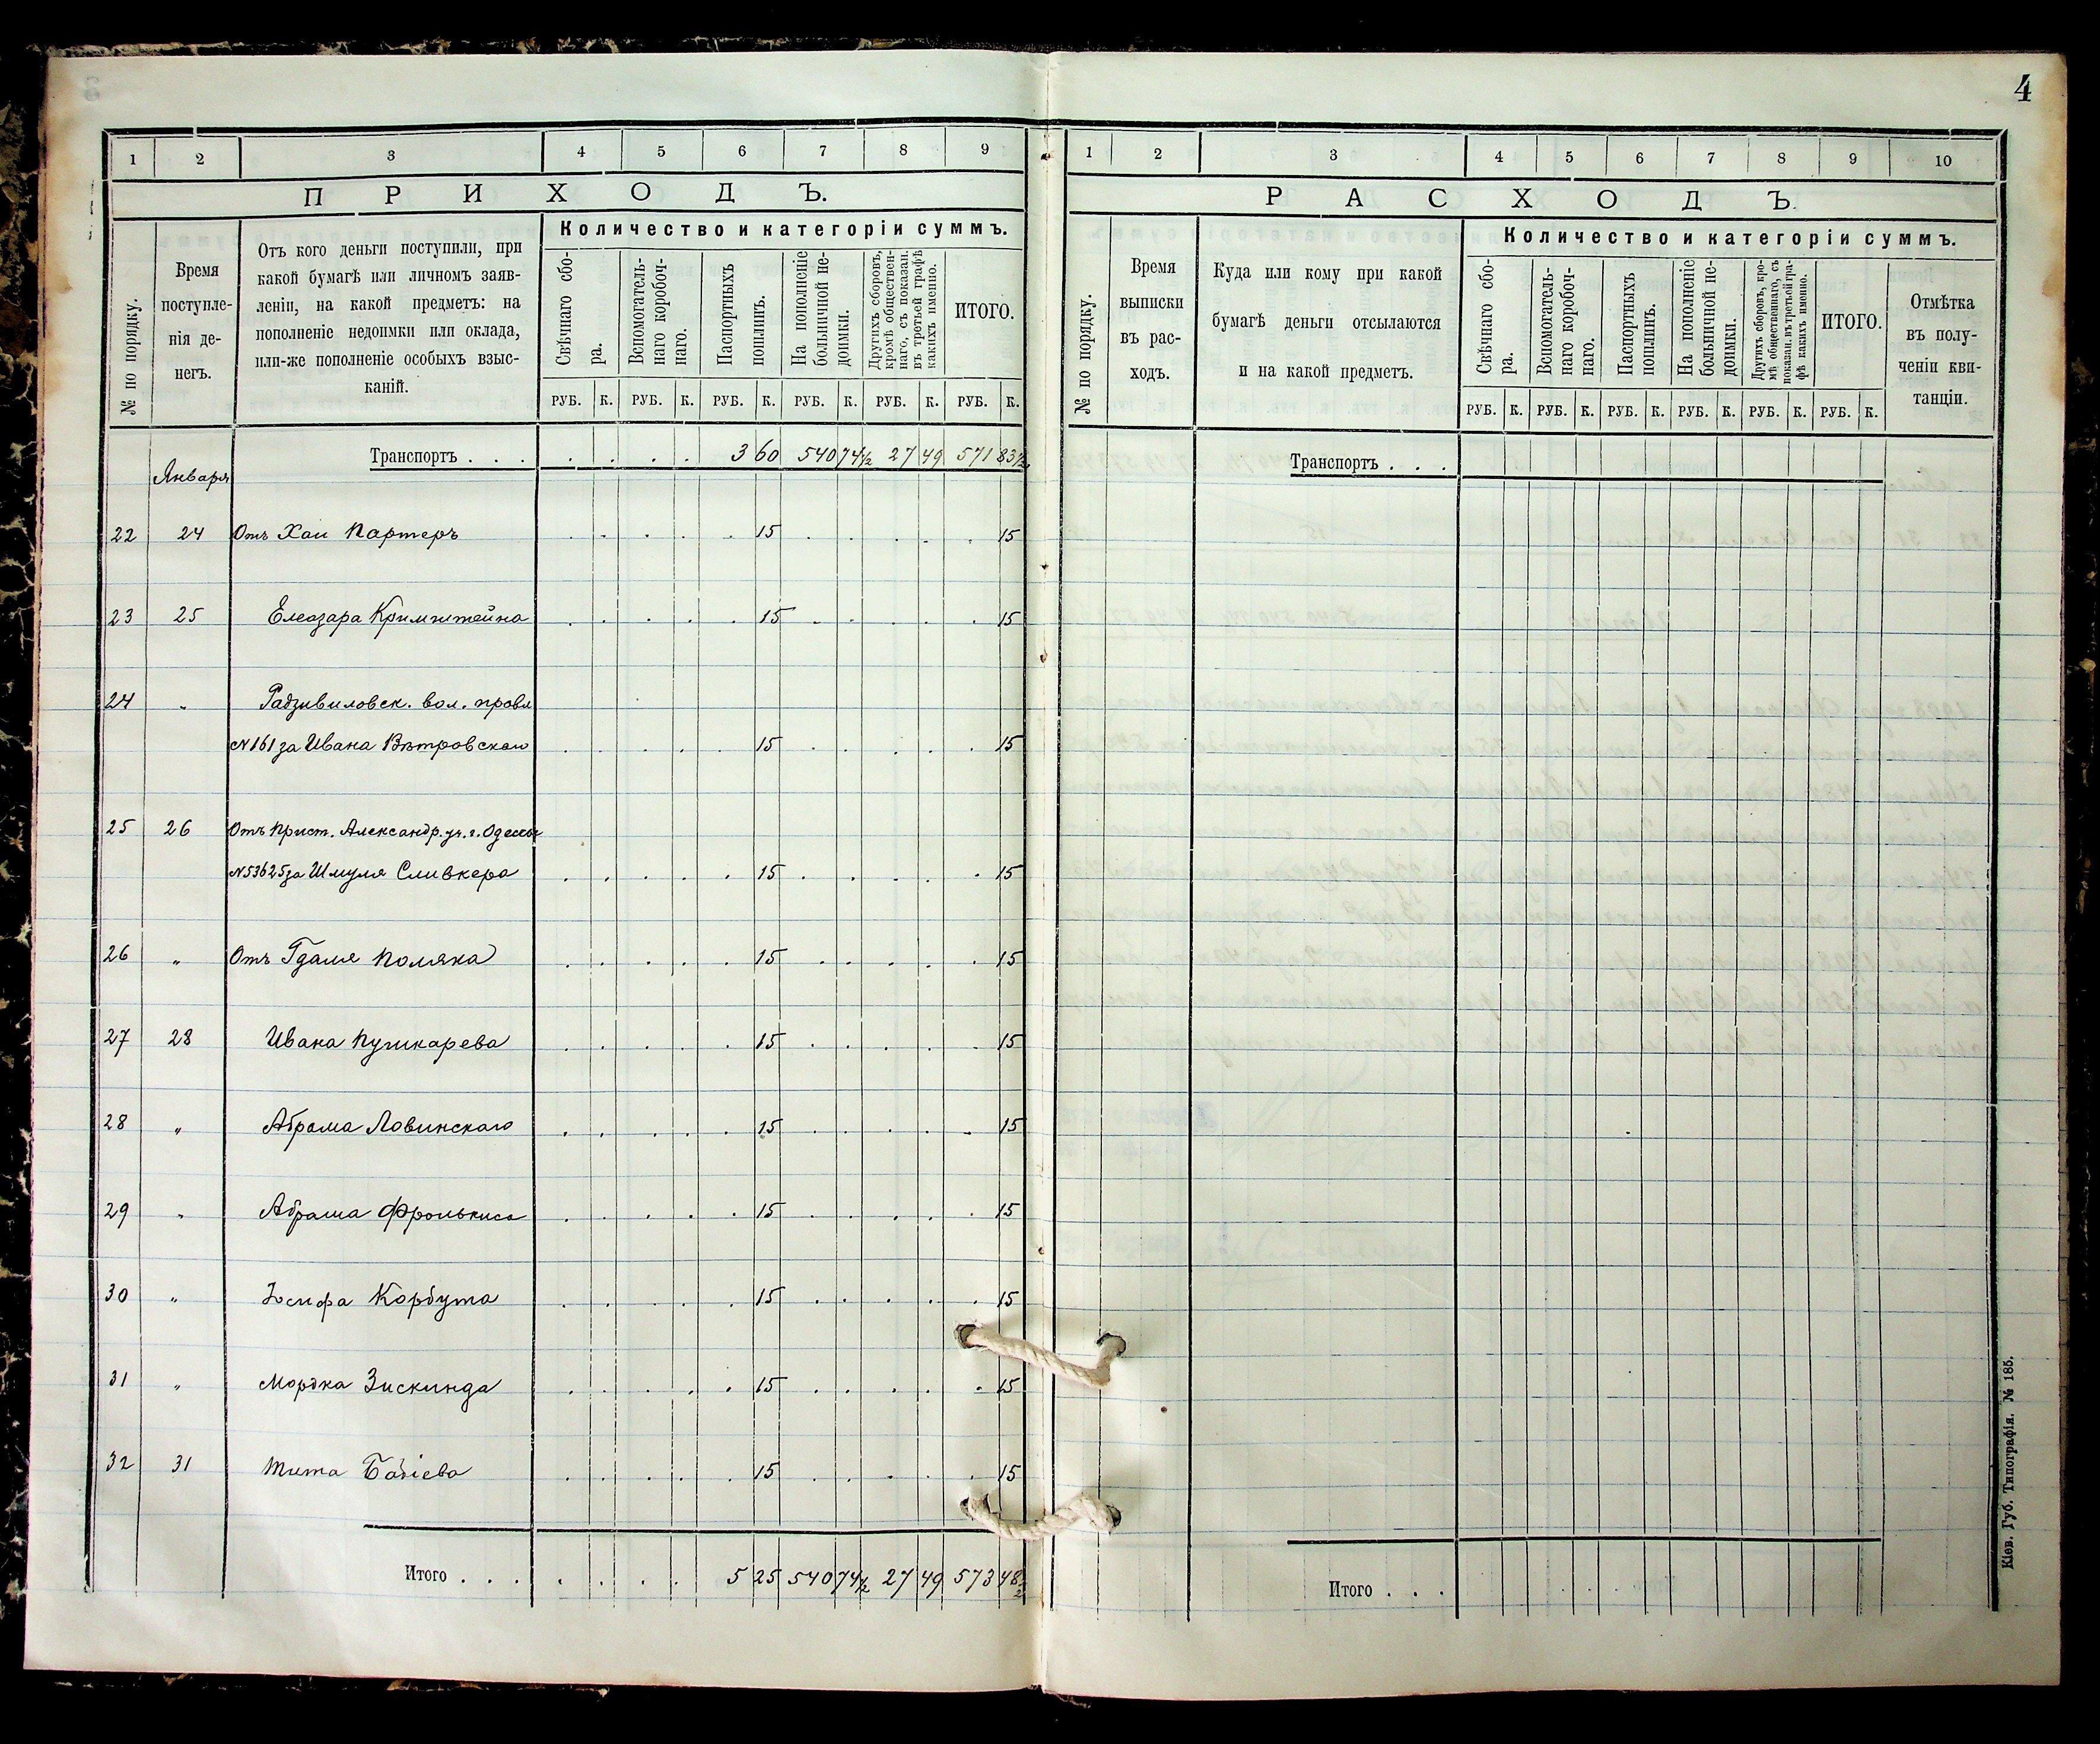 4
1 2 3 4 5 6 7 8 9
ПРИХОДЪ.
№ по порядку.
Время
поступле-
нія де-
негъ.
Отъ кого деньги поступили, при
какой бумагѣ или личномъ заяв-
леніи, на какой предметъ: на
пополненіе недоимки или оклада,
или-же пополненіе особыхъ взыс-
каній.
Количество и категоріи суммъ.
Свѣчнаго сбо-
ра.
Вспомогатель-
наго коробоч-
наго.
Паспортныхъ
пошлинъ.
На пополненіе
больничной не-
доимки.
Другихъ сборовъ,
кромѣ обществен-
наго, съ показан.
въ третьей графѣ
какихъ именно.
ИТОГО.
РУБ. К. РУБ. К. РУБ. К. РУБ. К. РУБ. К. РУБ. К.
Транспортъ . . . . . . . 3 60 540 74½ 27 49 571 83½
Января
22 24 Отъ Хаи Партеръ 15 15
23 25 Елеазара Кримштейна 15 15
24 " Радзивиловск. вол. правл
№161 за Ивана Вѣтровскаго 15 15
25 26 Отъ Прист. Александр. уч. г. Одессы
№53625 за Шмуля Сливкера 15 15
26 " Отъ Гдаля Поляка 15 15
27 28 Ивана Пушкарева 15 15
28 " Абрама Ловинскаго 15 15
29 " Абрама Фролькиса 15 15
30 " Іосифа Корбута 15 15
31 " Мордка Зискинда 15 15
32 31 Тита Бабіева 15 15
Итого . . . . . . . 5 25 540 74½ 27 49 573 48½
1 2 3 4 5 6 7 8 9 10
РАСХОДЪ.
№ по порядку.
Время
выписки
въ рас-
ходъ.
Куда или кому при какой
бумагѣ деньги отсылаются
и на какой предметъ.
Количество и категоріи суммъ.
Свѣчнаго сбо-
ра.
Вспомогатель-
наго коробоч-
наго.
Паспортныхъ
пошлинъ.
На пополненіе
больничной не-
доимки.
Другихъ сборовъ, кро-
мѣ общественнаго, съ
показан. въ третьей гра-
фѣ какихъ именно.
ИТОГО.
Отмѣтка
въ полу-
ченіи кви-
танціи.
РУБ. К. РУБ. К. РУБ. К. РУБ. К. РУБ. К. РУБ. К.
Транспортъ . . .
Итого . . .
Кіев. Губ. Типографія. № 185.